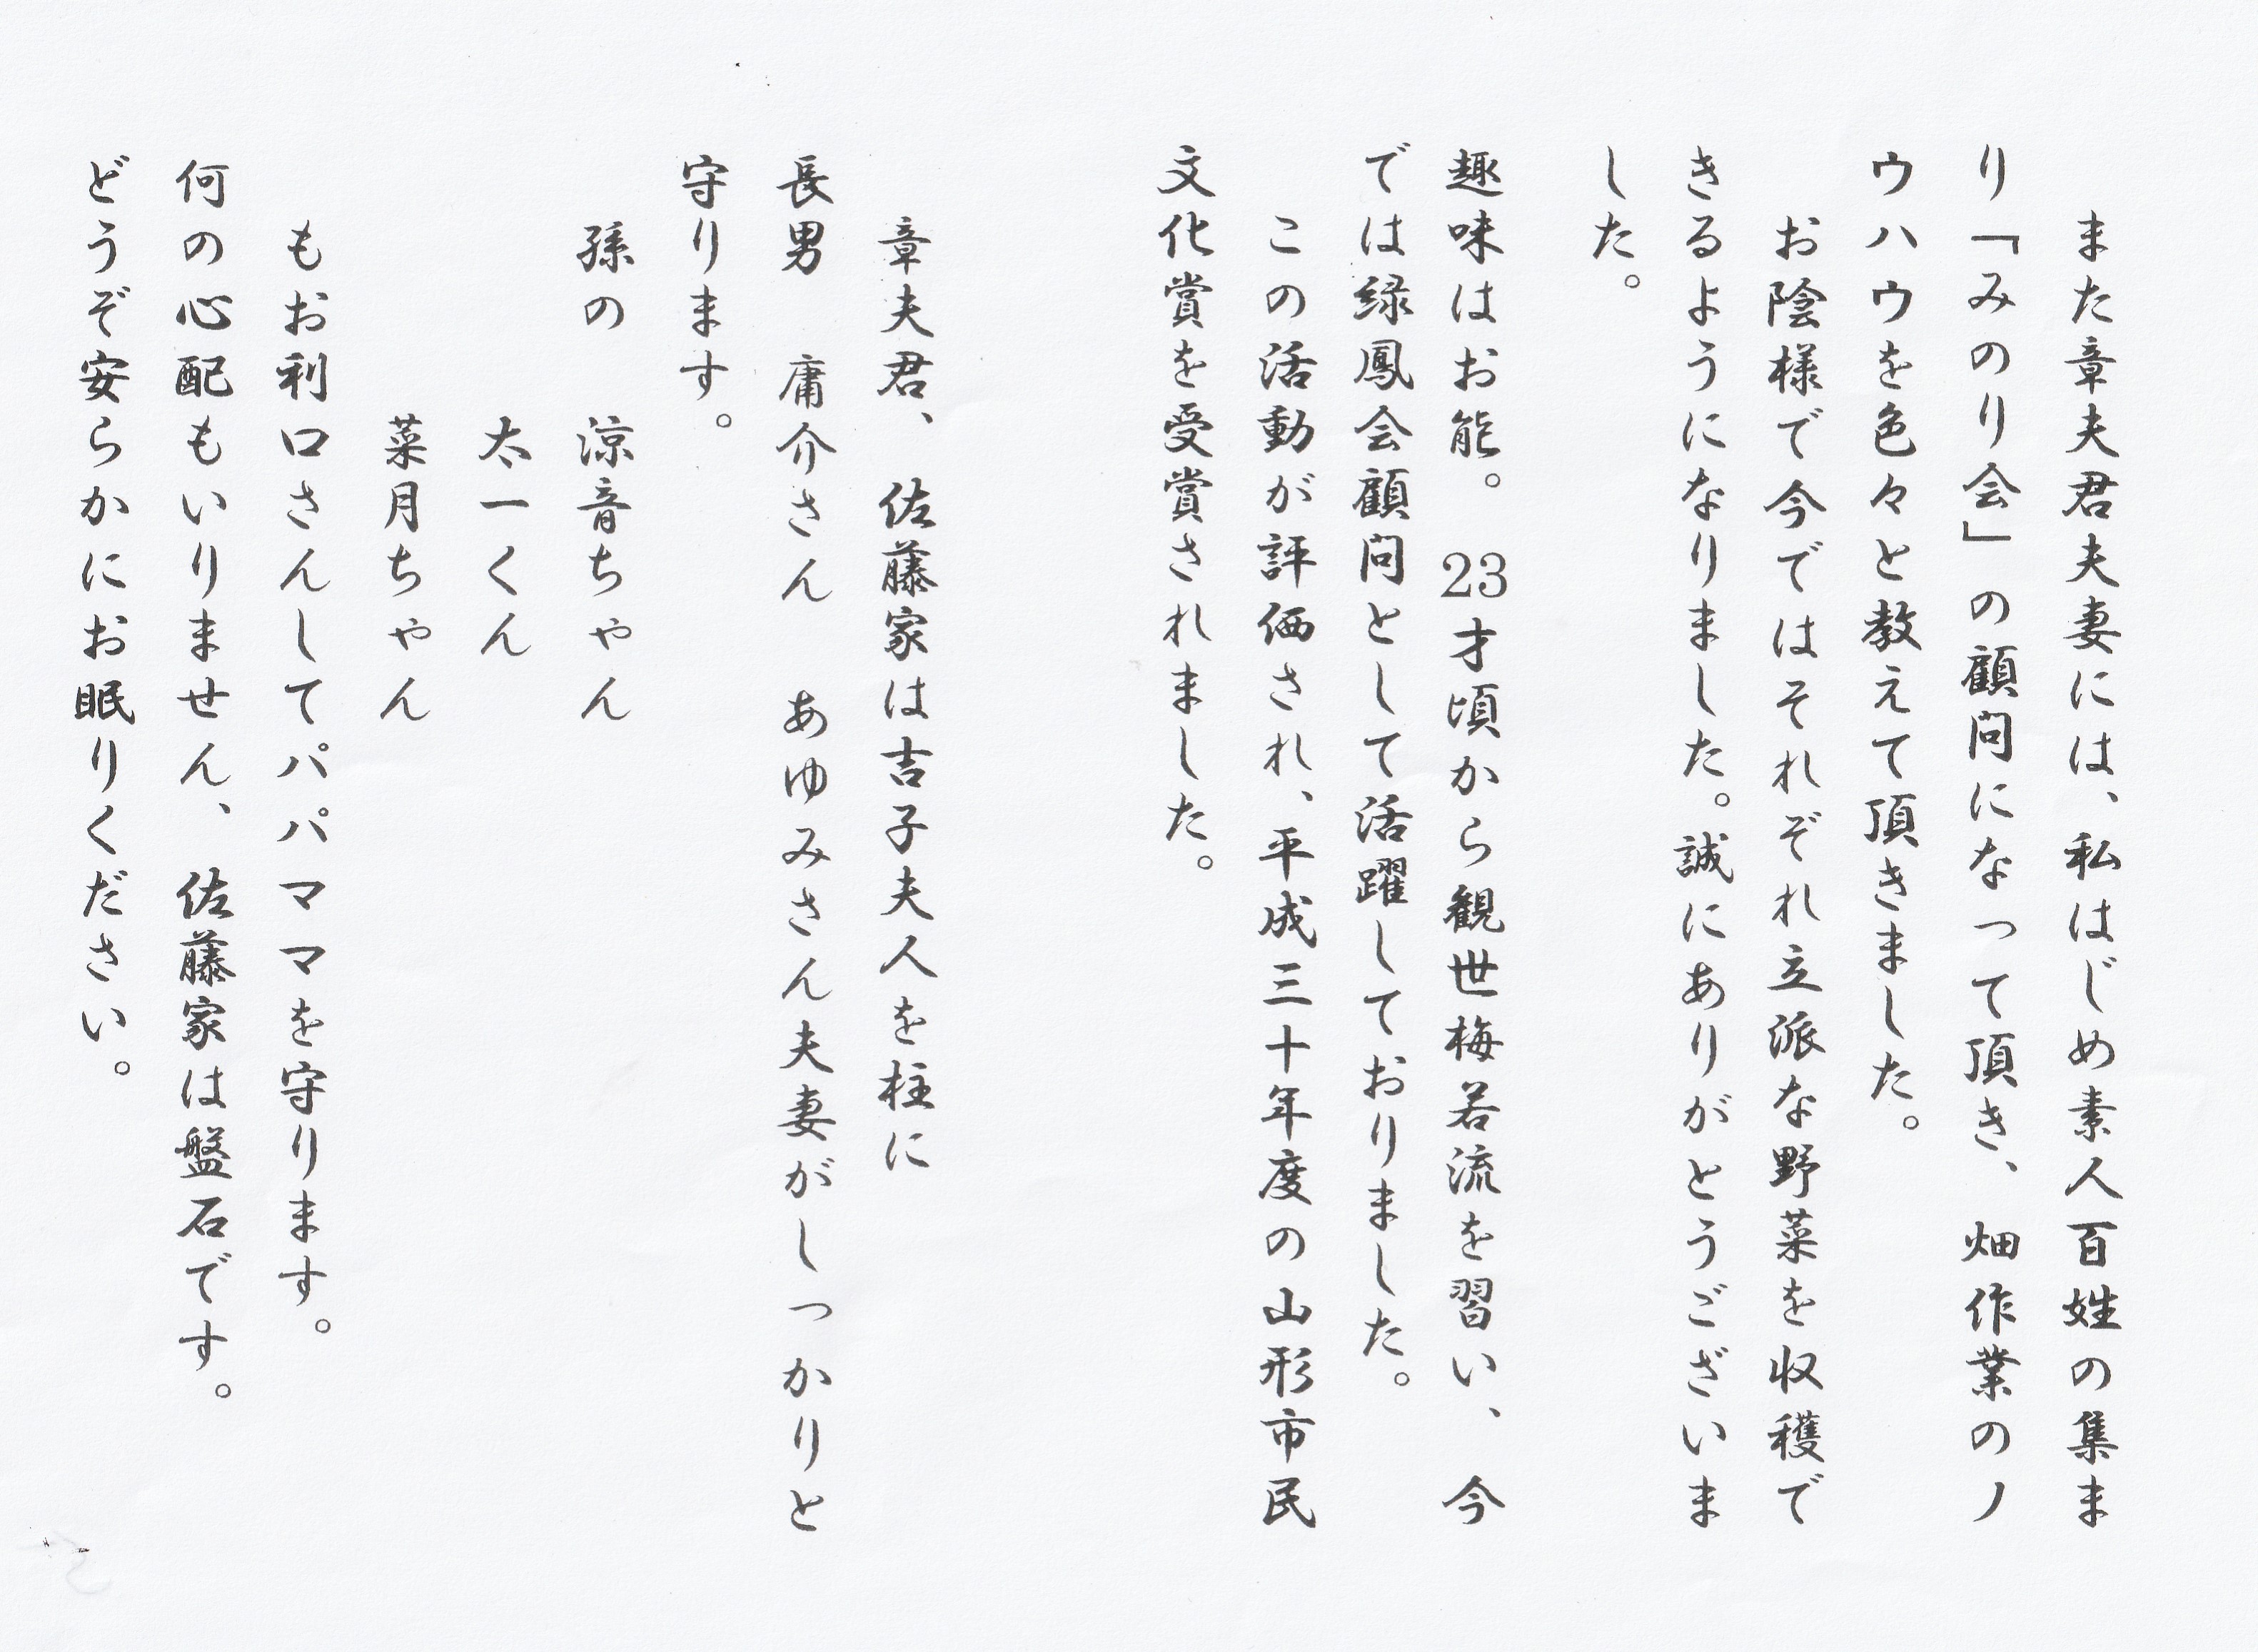 また章夫君夫妻には、私はじめ素人百姓の集ま
り「みのり会」の顧問になって頂き、畑作業のノ
ウハウを色々と教えて頂きました。
お陰様で今ではそれぞれ立派な野菜を収穫で
きるようになりました。誠にありがとうございま
した。
趣味はお能。23才頃から観世梅若流を習い、今
では緑鳳会顧問として活躍しておりました。
この活動が評価され、平成三十年度の山形市民
文化賞を受賞されました。
章夫君、佐藤家は吉子夫人を柱に
長男　庸介さん　あゆみさん夫妻がしっかりと
守ります。
孫の　涼音ちゃん
太一くん
菜月ちゃん
もお利口さんしてパパママを守ります。
何の心配もいりません、佐藤家は盤石です。
どうぞ安らかにお眠りください。